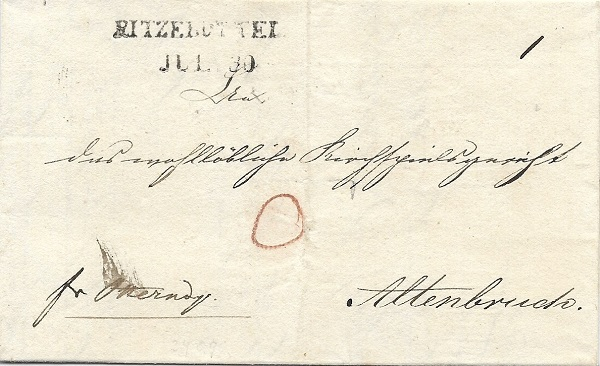 RITZEBÜTTEL
JUL 30
An
das wohllöbliche Kirchspielsgericht
fr Otterndf.
Altenbruch.